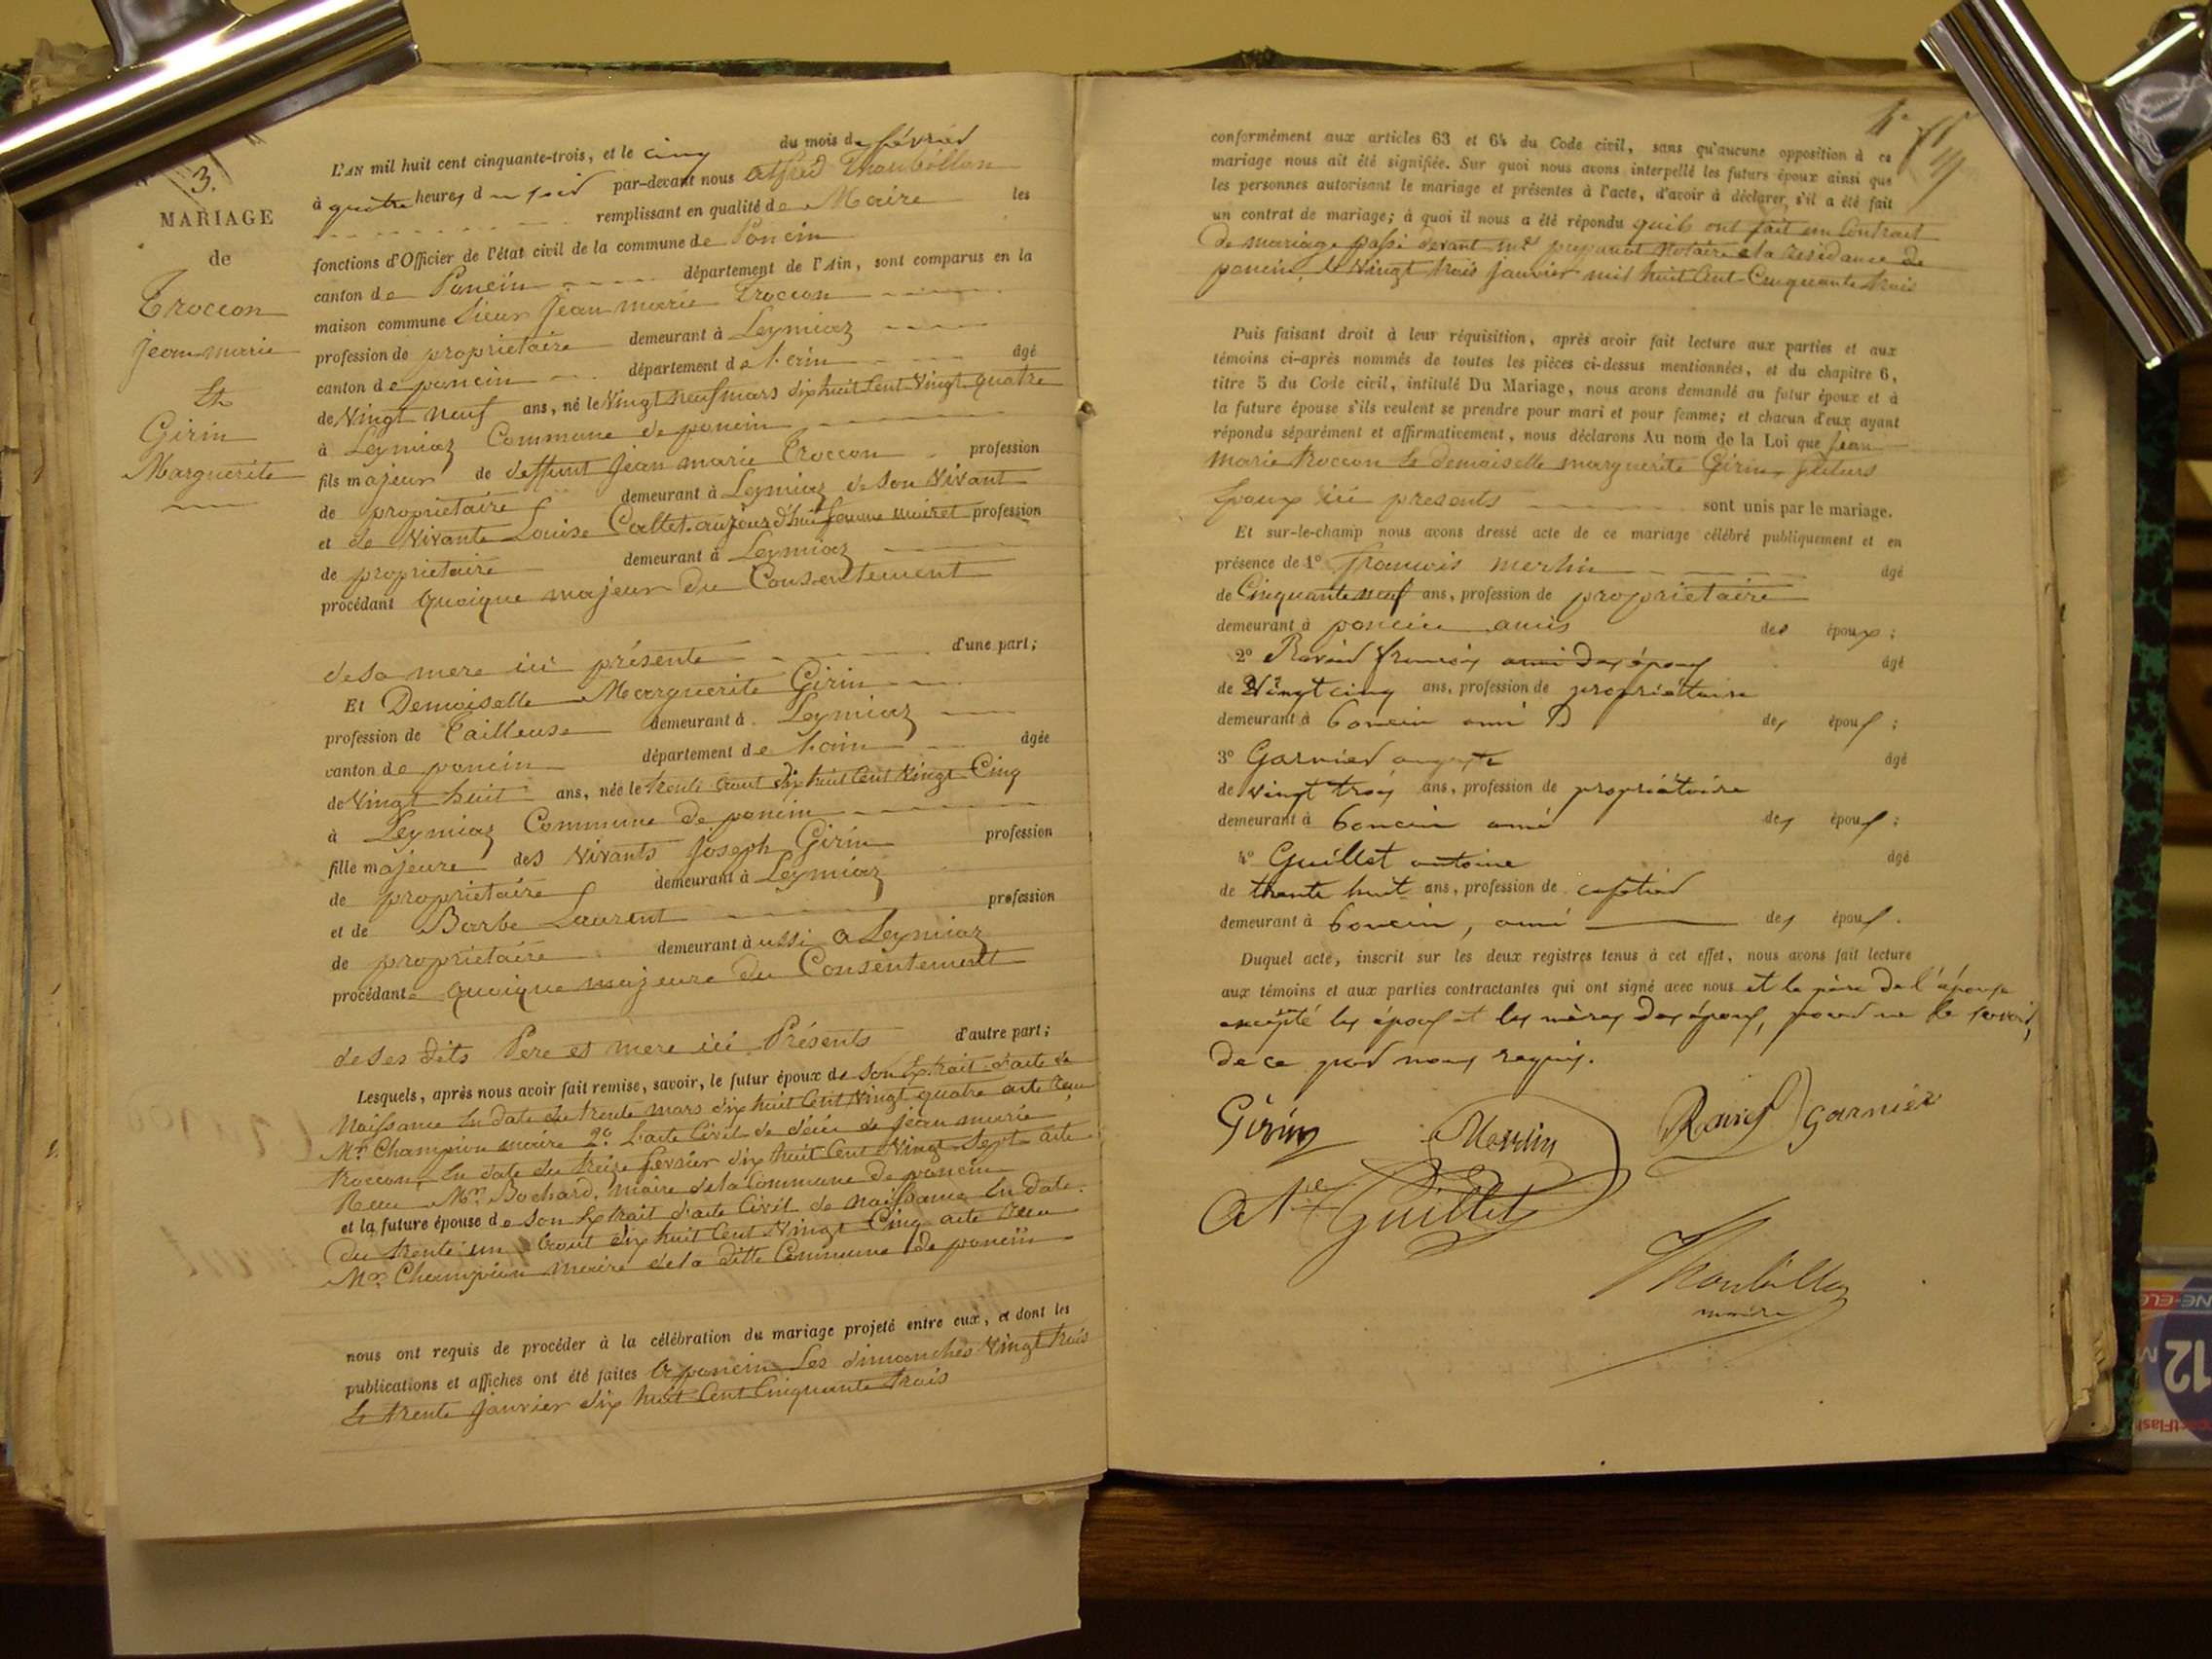 N° 3.
MARIAGE
de
Troccon
Jean marie
Et
Girin
Marguerite
L'AN mil huit cent cinquante-trois, et le cinq du mois de février
à quatre heures du soir par-devant nous Alfred Thoubillon
remplissant en qualité de Maire les
fonctions d'Officier de l'état civil de la commune de Poncin
canton de Poncin département de l'Ain, sont comparus en la
maison commune Sieur Jean marie Troccon
profession de propriétaire demeurant à Leymiaz
canton de poncin département de l'ain âgé
de Vingt neuf ans, né le Vingt neuf mars dix huit Cent Vingt quatre
à Leymiaz Commune de poncin
fils majeur de deffunt Jean marie Troccon profession
de propriétaire demeurant à Leymiaz de son Vivant
et de Vivante Louise Caltet aujourd'hui femme moiret profession
de propriétaire demeurant à Leymiaz
procédant quoique majeur du Consentement
de sa mere ici présente d'une part;
Et Demoiselle Marguerite Girin
profession de Tailleuse demeurant à Leymiaz
canton de poncin département de l'ain âgée
de Vingt huit ans, née le trente aout dix huit Cent Vingt Cinq
à Leymiaz Commune de poncin
fille majeure des Vivants Joseph Girin profession
de propriétaire demeurant à Leymiaz
et de Barbe Laurent profession
de propriétaire demeurant aussi a Leymiaz
procédante quoique majeure du Consentement
de ses dits Pere et mere ici Présents d'autre part;
Lesquels, après nous avoir fait remise, savoir, le futur époux de son Extrait d'acte de
Naissance En date du trente mars dix huit Cent Vingt quatre acte Reçu
Mr Champion maire 2° L'acte Civil de décès de Jean marie
Troccon, En date du treize fevrier dix huit Cent Vingt Sept acte
Recu Mr Bochard, maire de la Commune de poncin
et la future épouse de son Extrait d'acte Civil de naissance En date
du trente un aout dix huit Cent Vingt Cinq acte Recu
Mr Champion maire de la ditte Commune de poncin
nous ont requis de procéder à la célébration du mariage projeté entre eux, et dont les
publications et affiches ont été faites à poncin Les dimanches Vingt trois
Et trente janvier dix huit Cent Cinquante trois
conformément aux articles 63 et 64 du Code civil, sans qu'aucune opposition à ce
mariage nous ait été signifiée. Sur quoi nous avons interpellé les futurs époux ainsi que
les personnes autorisant le mariage et présentes à l'acte, d'avoir à déclarer, s'il a été fait
un contrat de mariage; à quoi il nous a été répondu quils ont fait un Contrat
de mariage passé devant Me Notaire a la Residance de
poncin, le Vingt trois janvier mil huit Cent Cinquante trois
Puis faisant droit à leur réquisition, après avoir fait lecture aux parties et aux
témoins ci-après nommés de toutes les pièces ci-dessus mentionnées, et du chapitre 6,
titre 5 du Code civil, intitulé Du Mariage, nous avons demandé au futur époux et à
la future épouse s'ils veulent se prendre pour mari et pour femme; et chacun d'eux ayant
répondu séparément et affirmativement, nous déclarons Au nom de la Loi que Jean
Marie Troccon Et demoiselle marguerite Girin, futurs
Epoux ici presents sont unis par le mariage.
Et sur-le-champ nous avons dressé acte de ce mariage célébré publiquement et en
présence de 1° françois merlin âgé
de Cinquante neuf ans, profession de propriétaire
demeurant à poncin amis des époux;
2° Ravier françois ami des époux âgé
de Vingt cinq ans, profession de propriétaire
demeurant à Poncin ami des époux;
3° Garnier auguste âgé
de vingt trois ans, profession de propriétaire
demeurant à Poncin ami des époux;
4° Guillet antoine âgé
de trente huit ans, profession de cafetier
demeurant à Poncin, ami des époux.
Duquel acte, inscrit sur les deux registres tenus à cet effet, nous avons fait lecture
aux témoins et aux parties contractantes qui ont signé avec nous et le père de l'épouse
excepté les époux et les mères des époux, pour ne le savoir,
de ce par nous requis.
Girin Merlin Ravier Garnier
Guillet
Thoubillon
maire
12